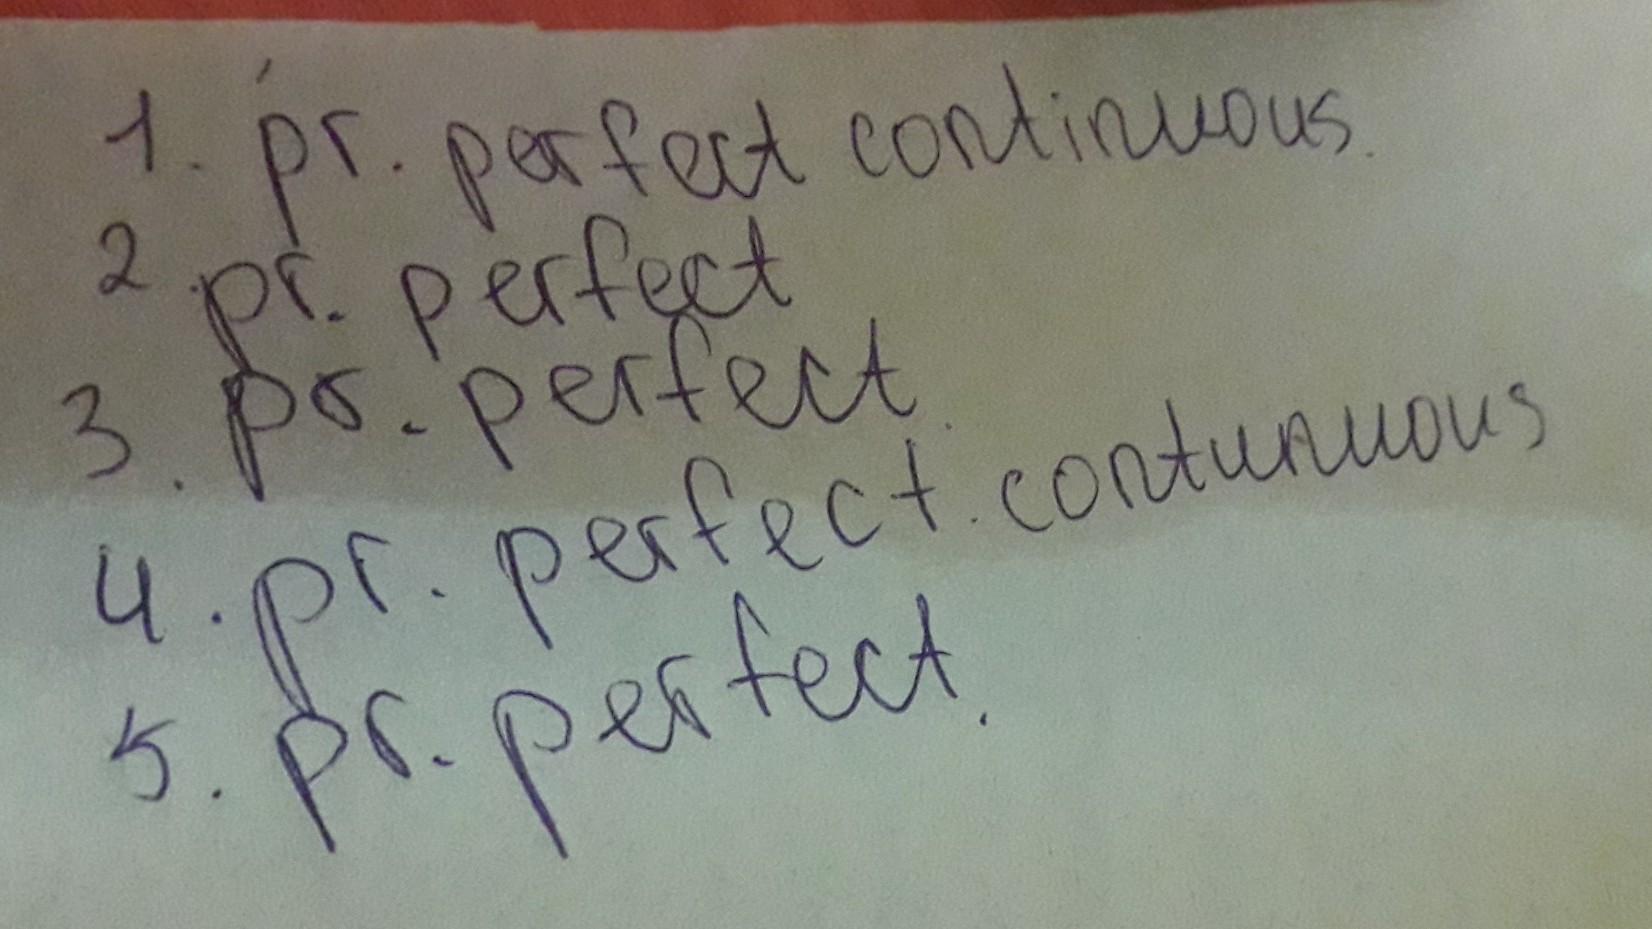 1. pr. perfect continuous.
2. pr. perfect
3. pr. perfect.
4. pr. perfect. contunuous
5. pr. perfect.